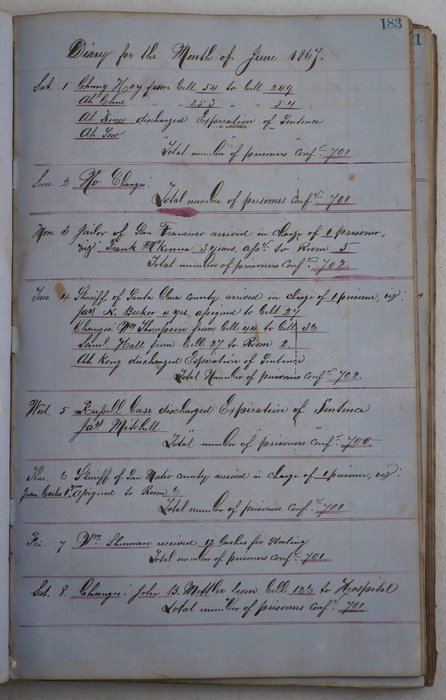 183
Diary for the Month of June 1867.
Sat. 1 Chung Hoy from Cell 54 to Cell 249
Ah Chue " " 253 " " 54
Ah Kome discharged Expiration of Sentence
Ah Sow " " "
Total number of prisoners Conf^d. 701
Sun. 2 No Changes
Total number of prisoners Conf^d. 701
Mon. 3 Jailor of San Francisco arrived in charge of 1 prisoner,
viz: Frank McKenna 3 years, to Room 5
Total number of prisoners Conf^d. 702.
Tues. 4 Sheriff of Santa Clara county arrived in charge of 1 prisoner, viz:
Ja^s. N. Becker 2 yrs, assigned to Cell 27
Changes: W^m Thompson from Cell 44 to Cell 33
Sam^l. Hall from Cell 27 to Room 2.
Ah Kong discharged Expiration of Sentence
Total Number of prisoners Conf^d. 702.
Wed. 5 Russell Case discharged Expiration of Sentence
Ja^s. Mitchell " " "
Total number of prisoners Conf^d. 700.
Thu. 6 Sheriff of San Mateo county arrived in charge of 1 prisoner, viz:
Juan Carlos assigned to Room 3
Total number of prisoners Conf^d. 701
Fri. 7 W^m Sherman received 12 Lashes for Stealing
Total number of prisoners Conf^d. 701.
Sat. 8. Changes: John B. Mettler from Cell 122 to Hospital
Total number of prisoners Conf^d. 701